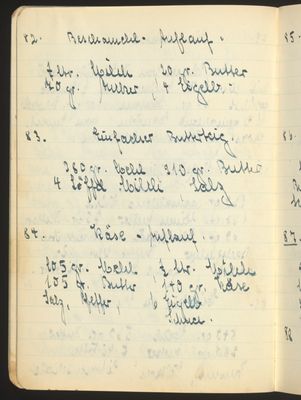 82. Beschamehl-Auflauf.
½ ltr. Milch, 20 gr. Butter
70 gr. 4
83. Einfacher Butterteig.
280 gr. Mehl 210 gr. Butter
4 Löffel Milli Salz
84. Käse-Auflauf.
105 gr. Mehl ½ ltr. Milch
105 gr. Butter 140 gr. Käse
Salz, Pfeffer, 6 Eigelb
Schnee.
85.
86.
87.
88